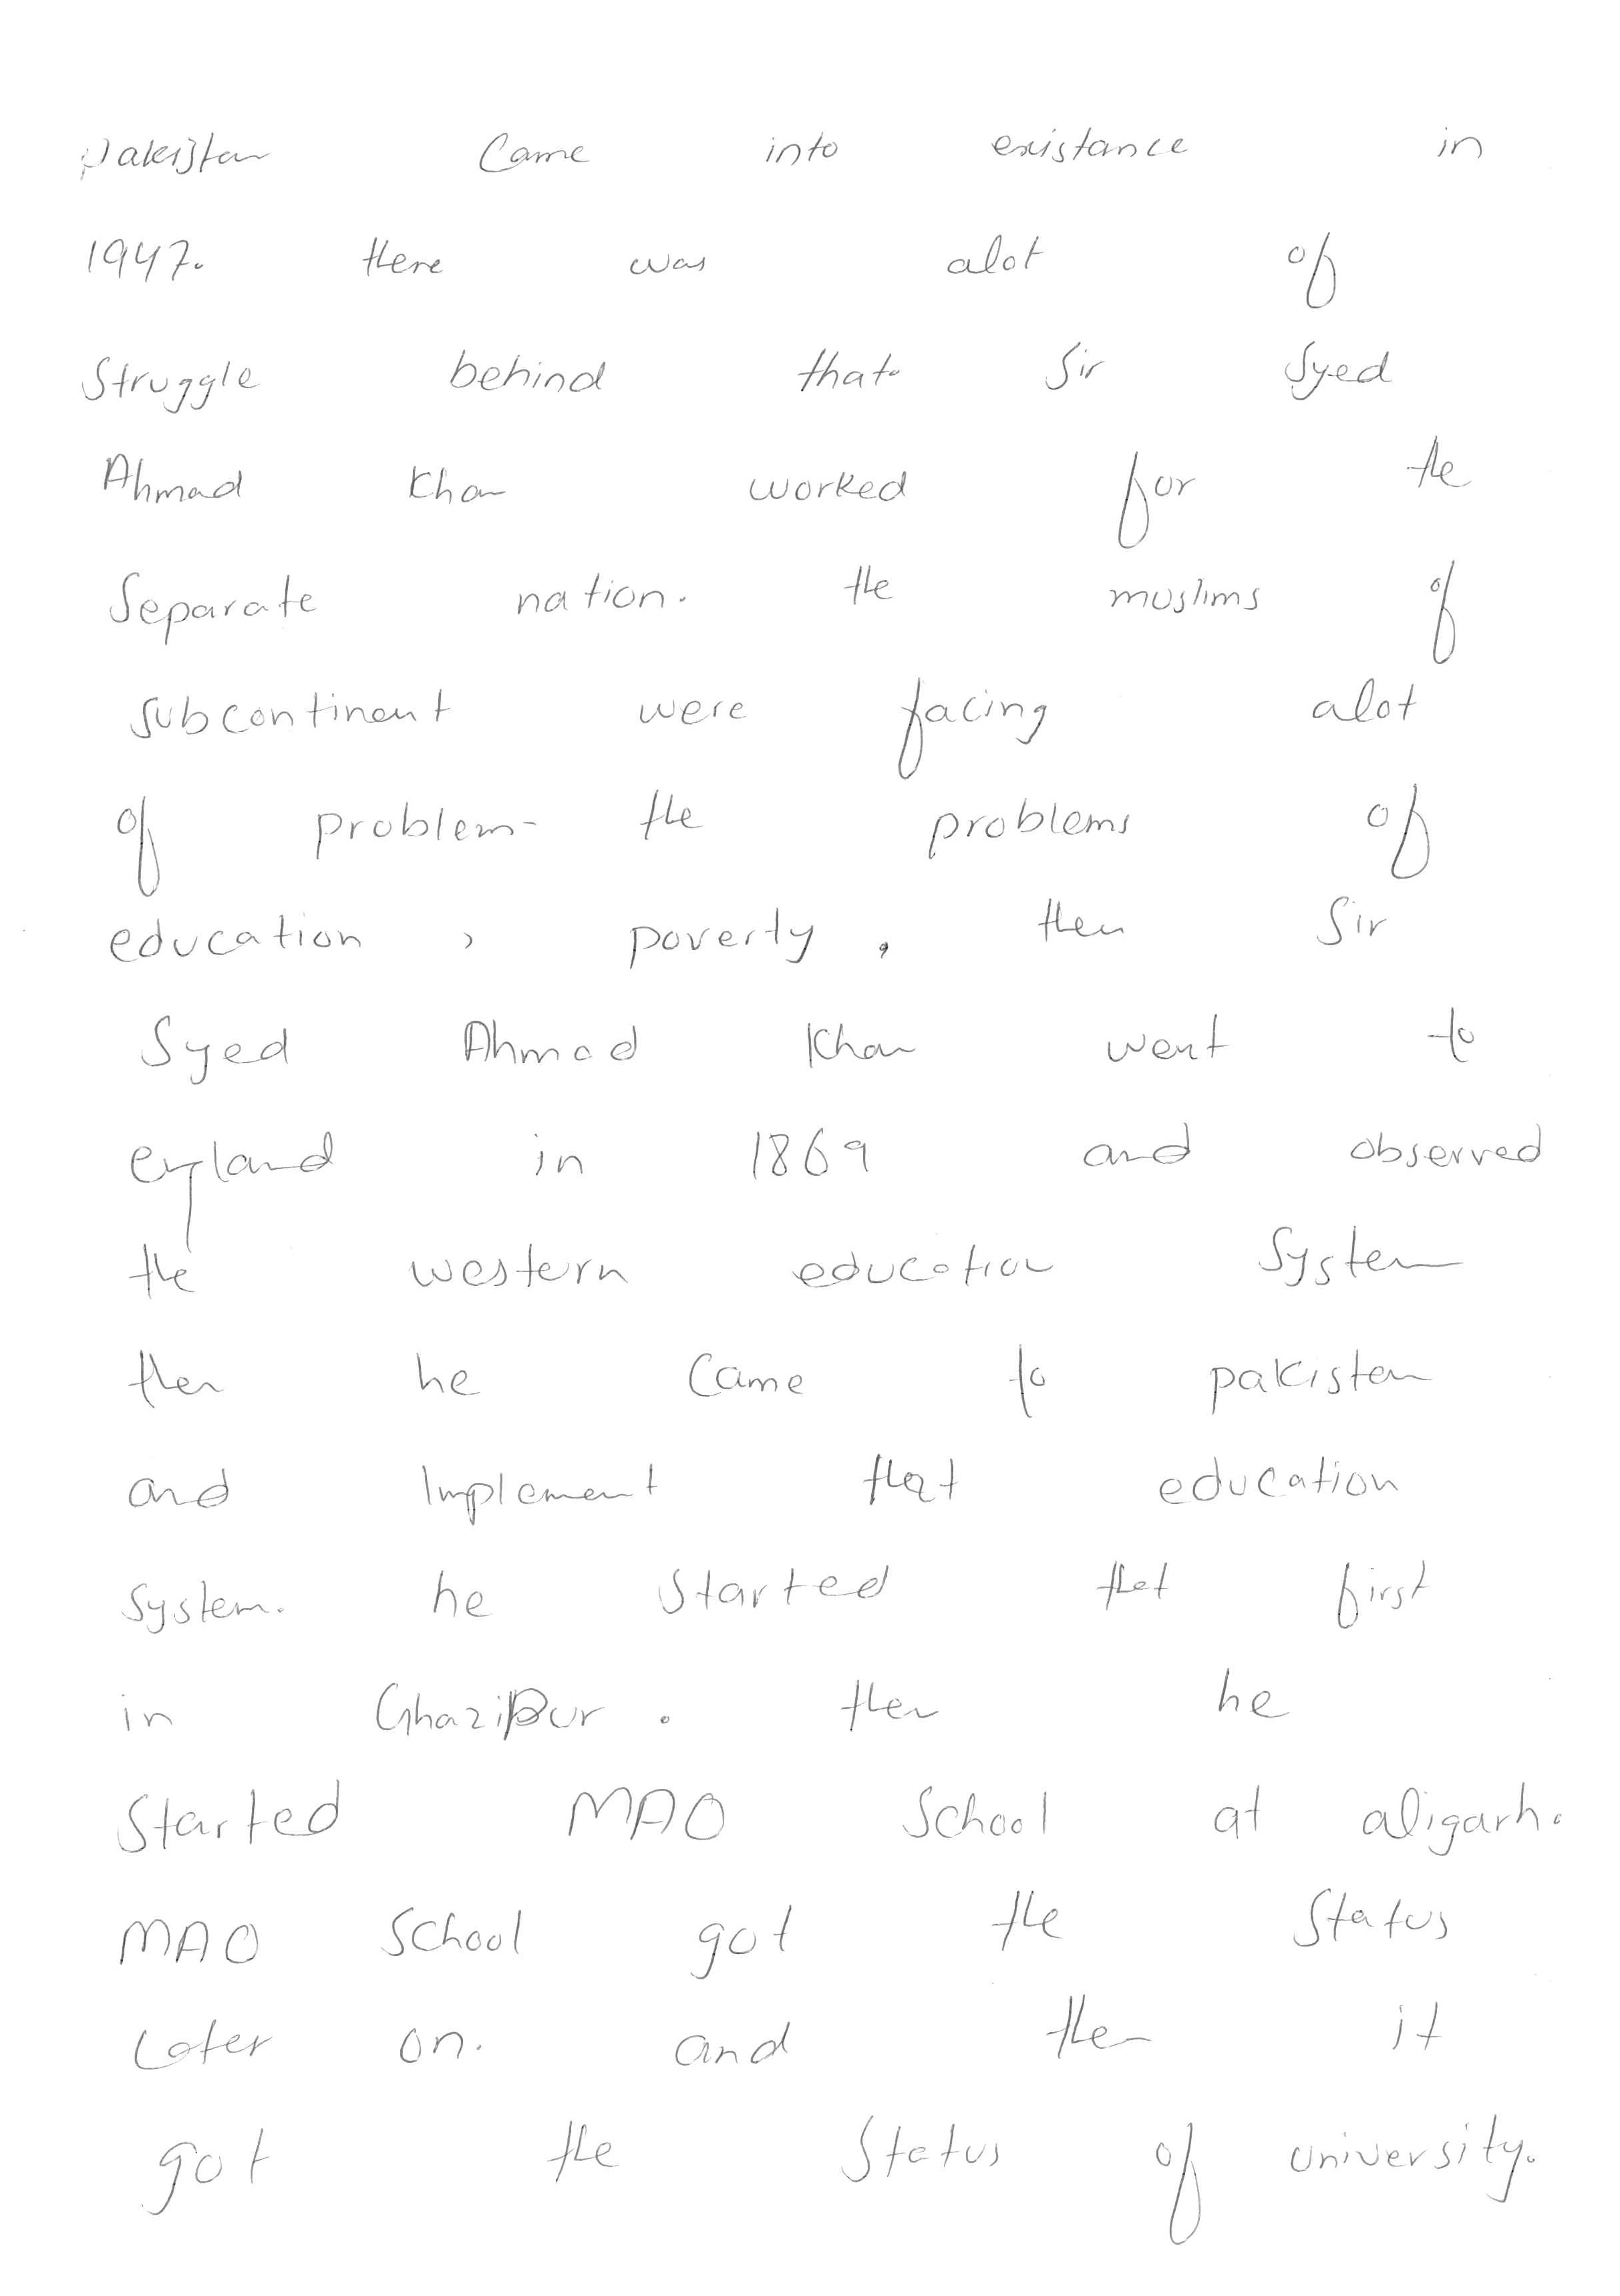 pakistan Came into existance in
1947. there was alot of
Struggle behind that. Sir Syed
Ahmad Khan worked for the
Separate nation. the muslims of
subcontinent were facing alot
of problem- the problems of
education , poverty , then Sir
Syed Ahmad Khan went to
England in 1869 and observed
the western education System
then he Came to pakistan
and Implement that education
System. he Started that first
in Ghazipur . then he
Started MAO School at aligarh.
MAO School got the Status
Later on. and then it
got the Status of university.